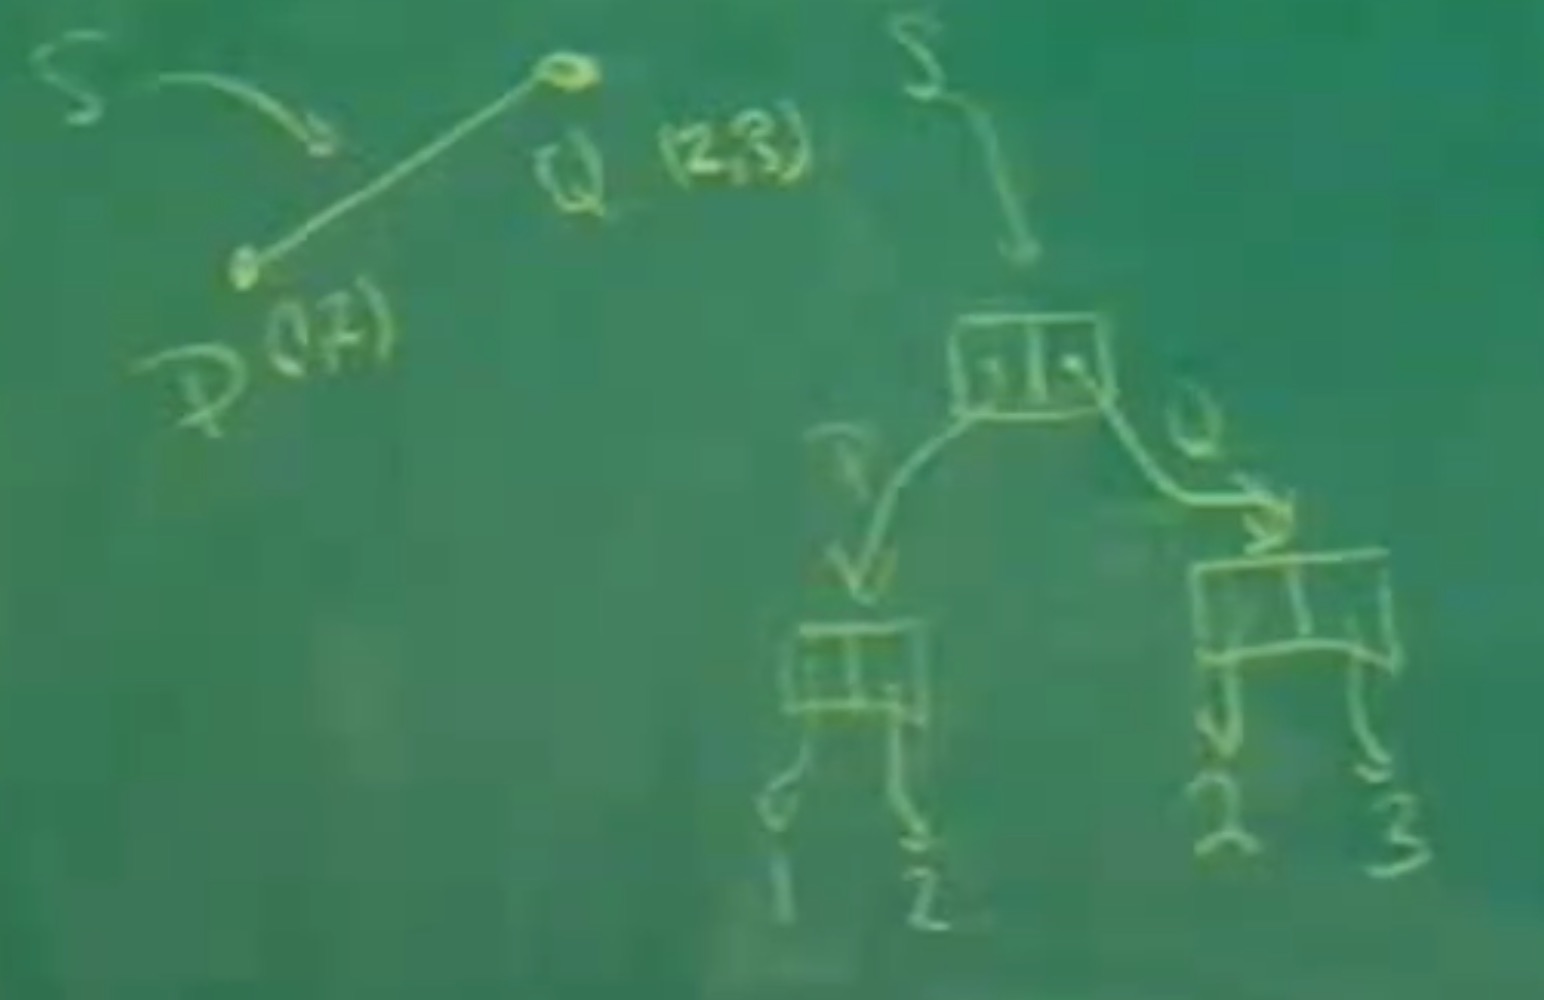 S
Q (2,3)
P (1,2)
S
P Q
1 2 2 3